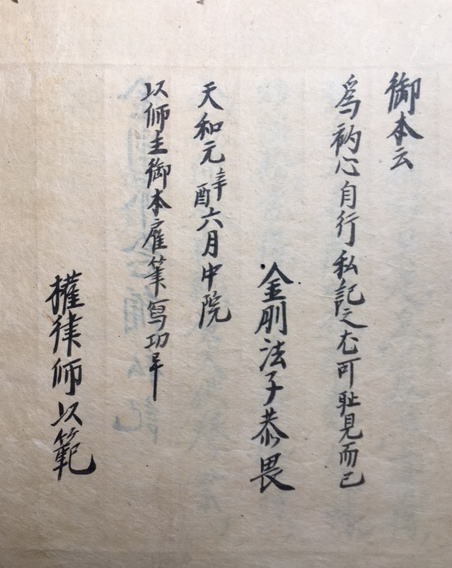 御本云
為初心自行私記之尤可耻見而已
金剛法子恭畏
天和元年辛酉六月中院
以師主御本雇筆写功畢
權律師以範